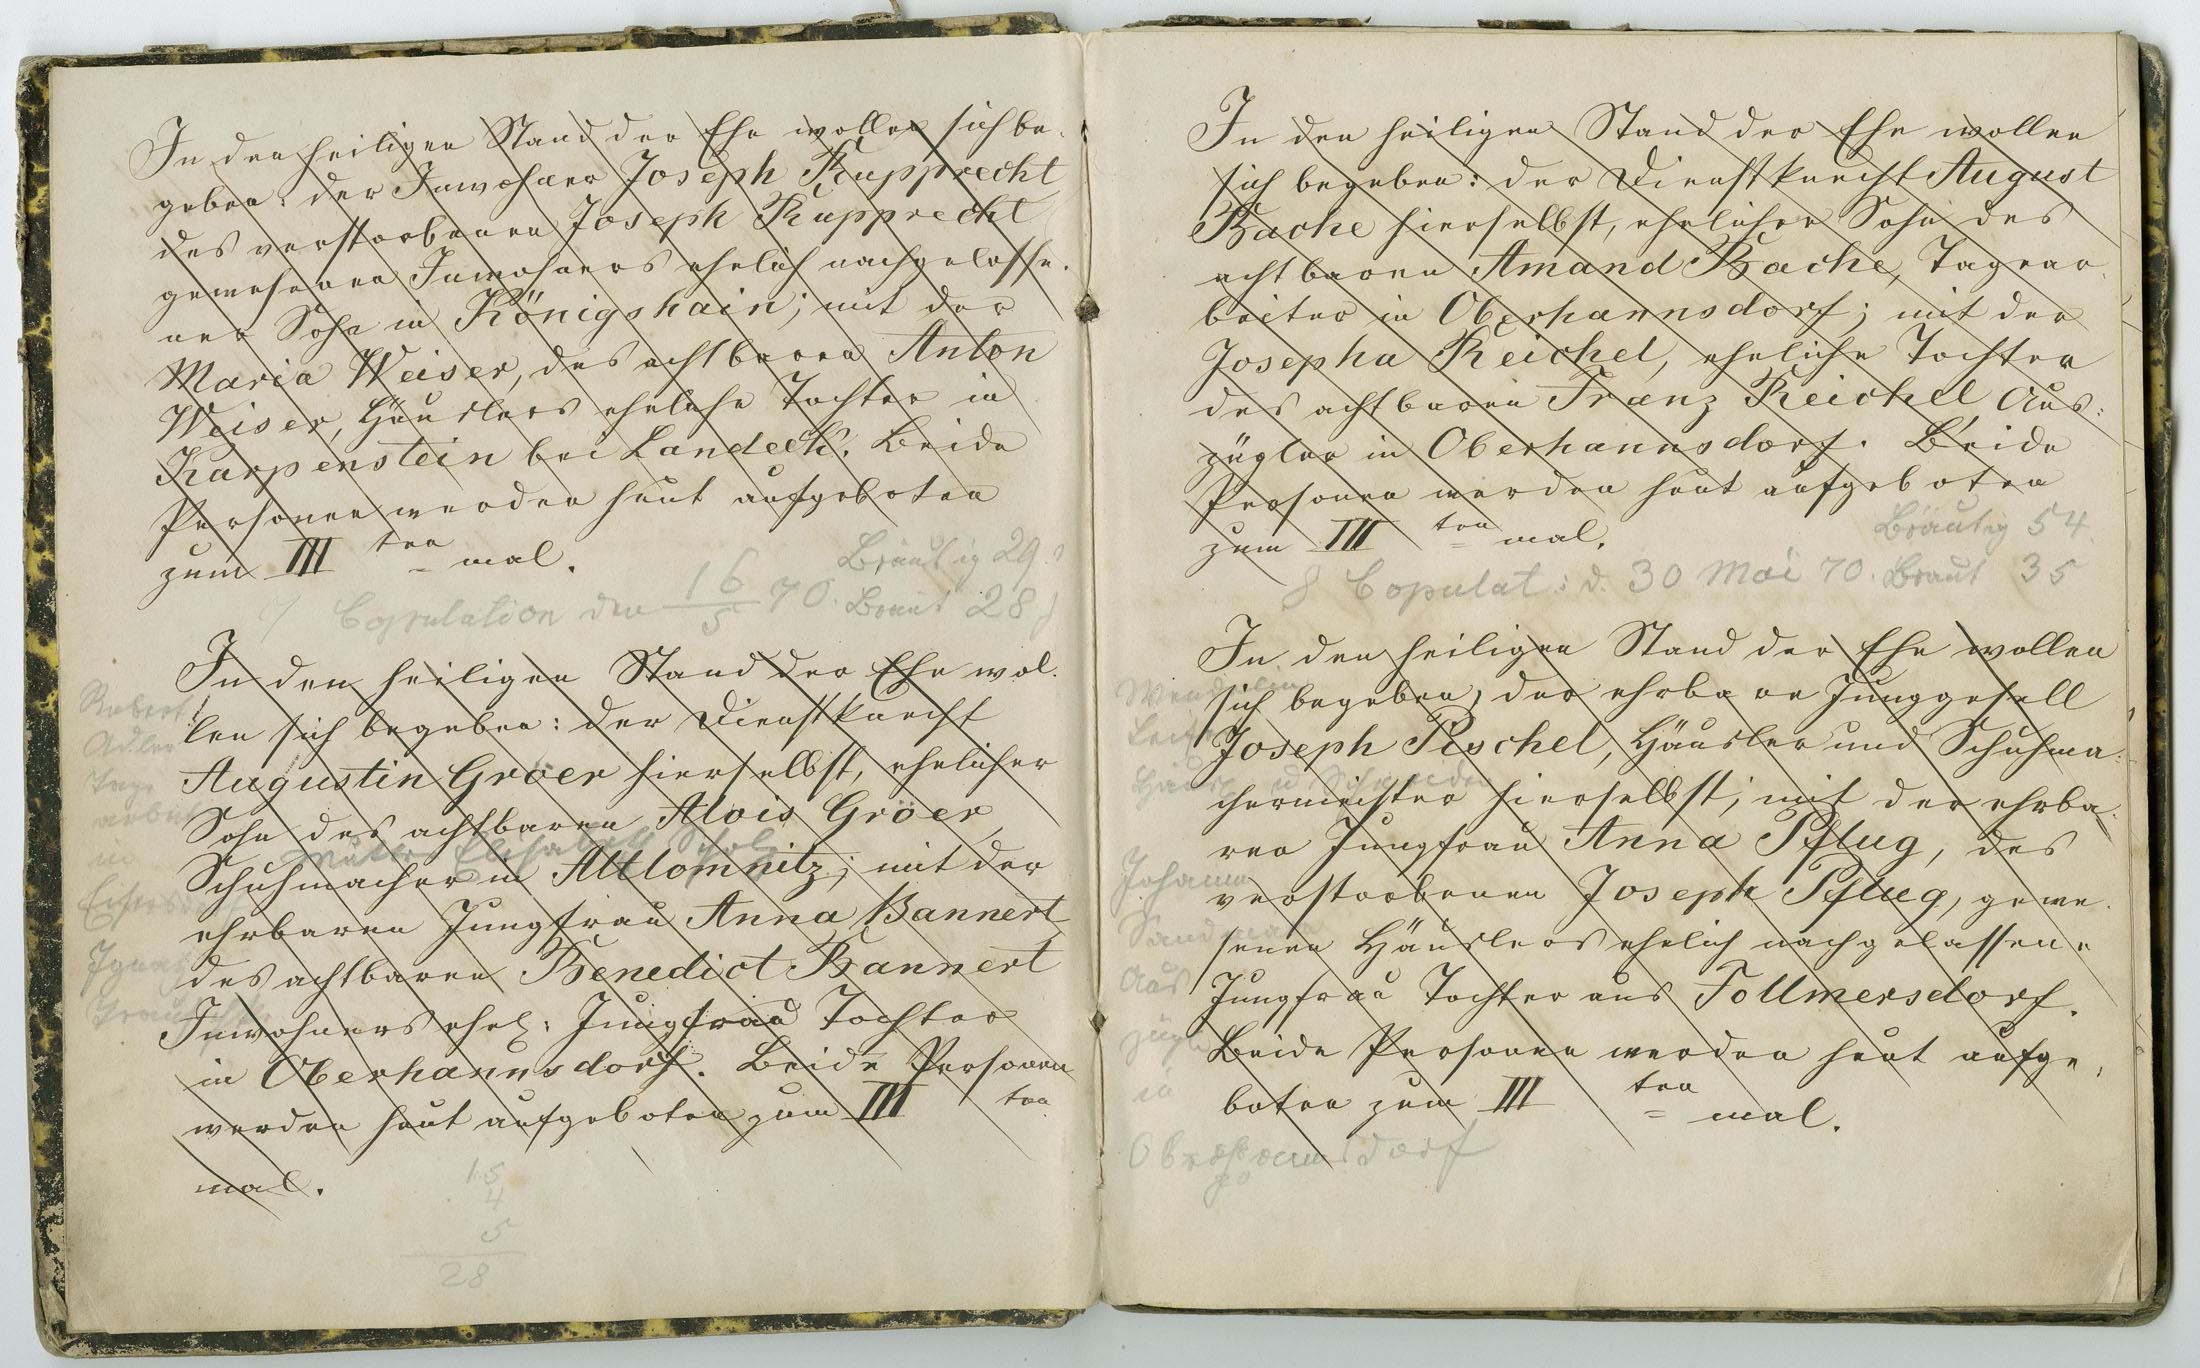 In den heiligen Stand der Ehe wollen sich be-
geben: der Inwohner Joseph Rupprecht
des verstorbenen Joseph Rupprecht
gewesenen Inwohners ehelich nachgelasse-
ner Sohn in Königshain; mit der
Maria Weiser, des achtbaren Anton
Weiser, Häuslers eheliche Tochter in
Karpenstein bei Landeck. Beide
Personen werden heut aufgeboten
zum III ten mal.
Bräutig 29
7 Copulation den 16/5 70. Braut 28 j
In den heiligen Stand der Ehe wol-
len sich begeben: der Dienstknecht
Augustin Gröer hierselbst, ehelicher
Sohn des achtbaren Alois Gröer,
Mutter Elisabeth Scholz
Schuhmacher in Altlomnitz; mit der
ehrbaren Jungfrau Anna Bannert
des achtbaren Benedict Bannert
Inwohners ehel: Jungfrau Tochter
in Oberhannsdorf. Beide Personen
werden heut aufgeboten zum III ten
mal.
Robert
Adler
Tage
arbeit
in
Ignaz
15
4
5
28
In den heiligen Stand der Ehe wollen
sich begeben: der Dienstknecht August
Bache hierselbst, ehelicher Sohn des
achtbaren Amand Bache, Tagear-
beiter in Oberhannsdorf; mit der
Josepha Reichel, eheliche Tochter
des achtbaren Franz Reichel Aus-
zügler in Oberhannsdorf. Beide
Personen werden heut aufgeboten
zum III ten mal.
Bräutig 54
8 Copulat: d. 30 Mai 70. Braut 35
In den heiligen Stand der Ehe wollen
sich begeben; der ehrbare Junggesell
Joseph Pischel, Häusler und Schuhma-
chermeister hierselbst; mit der ehrba-
ren Jungfrau Anna Pflug, des
verstorbenen Joseph Pflug, gewe-
senen Häuslers ehelich nachgelassene
Jungfrau Tochter aus Follmersdorf.
Beide Personen werden heut aufge-
boten zum III ten mal.
Johann
Aus
zügler
in
Oberhannsdorf